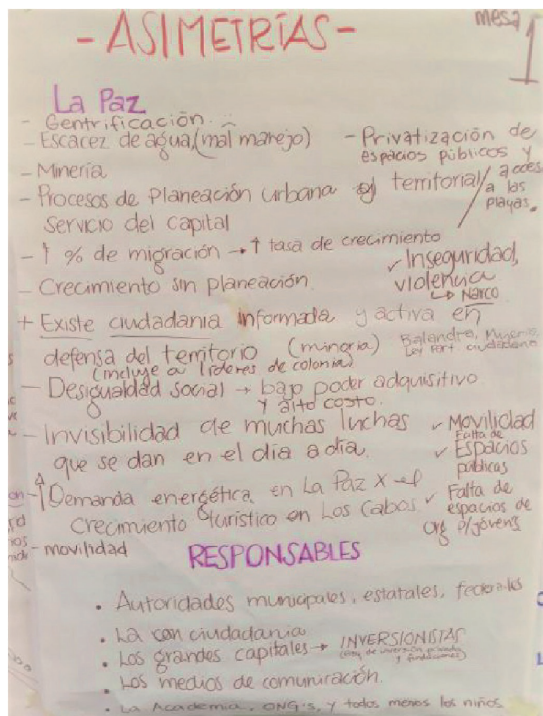 - ASIMETRÍAS -
mesa 1
La Paz
- Gentrificación.
- Escacez de agua (mal manejo)
- Privatización de espacios públicos y / acceso a las playas.
- Minería
- Procesos de Planeación urbana y territorial al
servicio del capital
- ↑ % de migración → ↑ tasa de crecimiento
- Crecimiento sin planeación.
✓ Inseguridad,
violencia
↳ Narco
+ Existe ciudadanía informada y activa en
defensa del territorio (minoría)
(incluye a líderes de colonia)
Balandra,
ciudadano
- Desigualdad social → bajo poder adquisitivo
y alto costo.
- Invisibilidad de muchas luchas
que se dan en el día a día.
✓ Movilidad
✓ Falta de
Espacios
públicos
- ↑ Demanda energética en La Paz x el
crecimiento turístico en Los Cabos
✓ Falta de
espacios de
org p/jóvens
- movilidad
RESPONSABLES
• Autoridades municipales, estatales, federales
• La con ciudadanía
• Los grandes capitales → INVERSIONISTAS
y fundaciones)
• Los medios de comunicación.
• La Academia, ONG's, y todos menos los niños